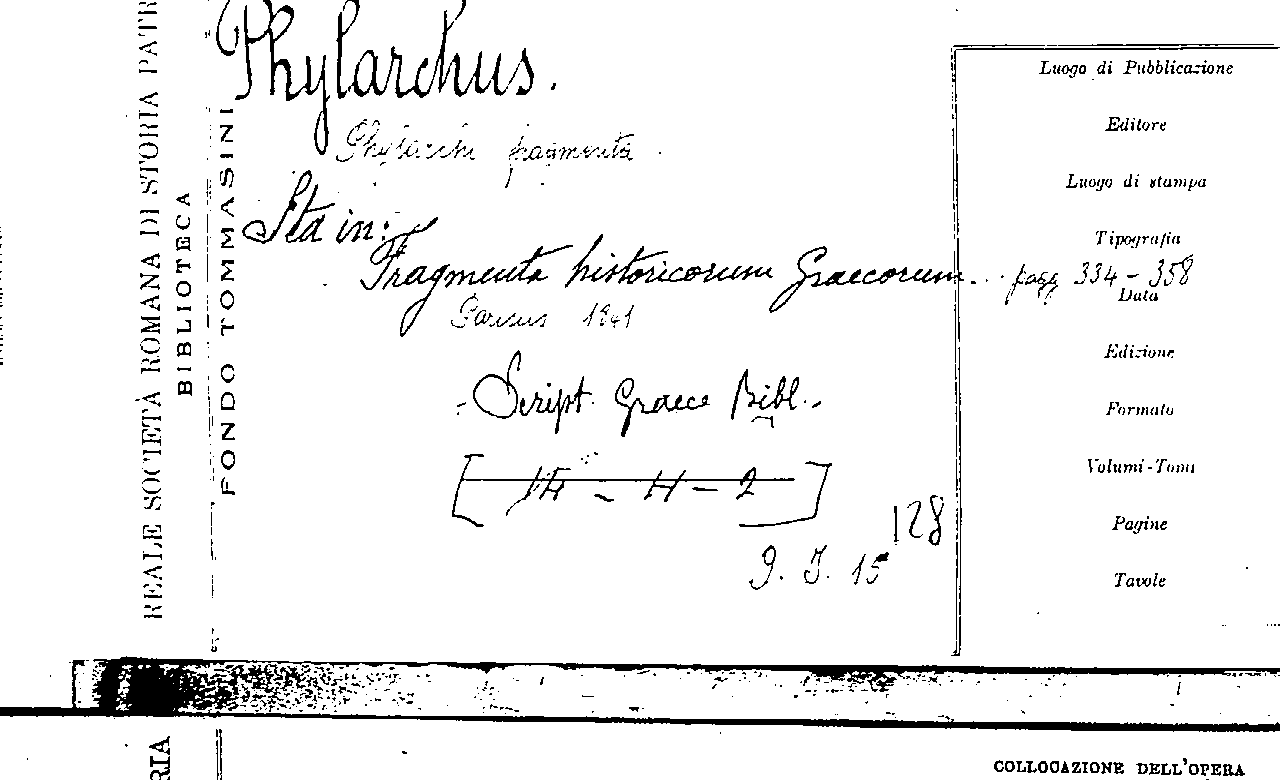 REALE SOCIETÀ ROMANA DI STORIA PATR
BIBLIOTECA
FONDO TOMMASINI
Phylarchus.
Phylarchi fragmenta.
Sta in:
Fragmenta historicorum Graecorum... pagg 334-358
Parisiis 1841
- Script. Graece Bibl.
[14-H-2]
9. J. 15
128
Luogo di Pubblicazione
Editore
Luogo di stampa
Tipografia
Data
Edizione
Formato
Volumi-Tomi
Pagine
Tavole
RIA
COLLOCAZIONE DELL'OPERA